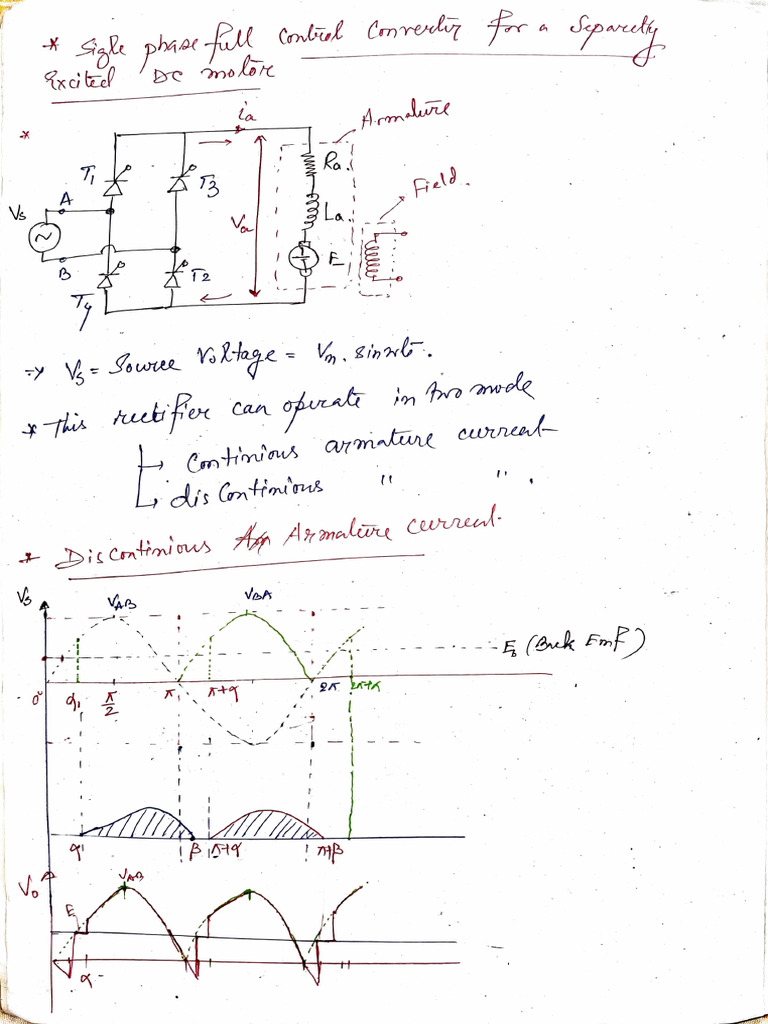 * Sigle phase full control converter for a separetly
Excited DC motor
*
ia
Armature
T1
T3
Ra.
Field.
A
Vs
Va
La.
B
E
T4
T2
=> Vs = Source Voltage = Vm. sinwt.
* This rectifier can operate in two mode
→ Continious armature current
→ dis Continious " ".
* Discontinious Armature current.
Vs
VAB
VBA
Eb (Back Emf)
0
α1
π/2
π
π+α
2π
2π+α
α
β
π+α
π+β
Vo
VAB
E
α